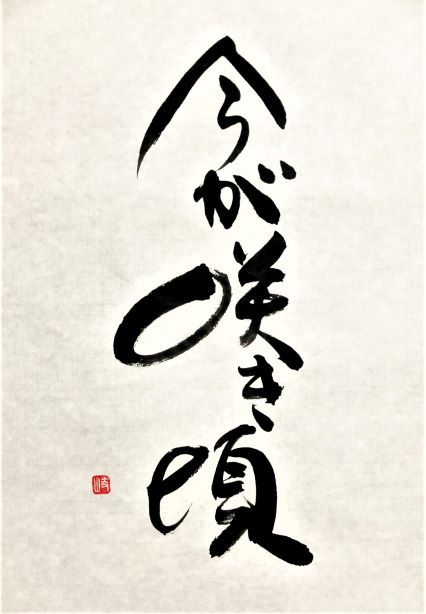 今が咲き頃